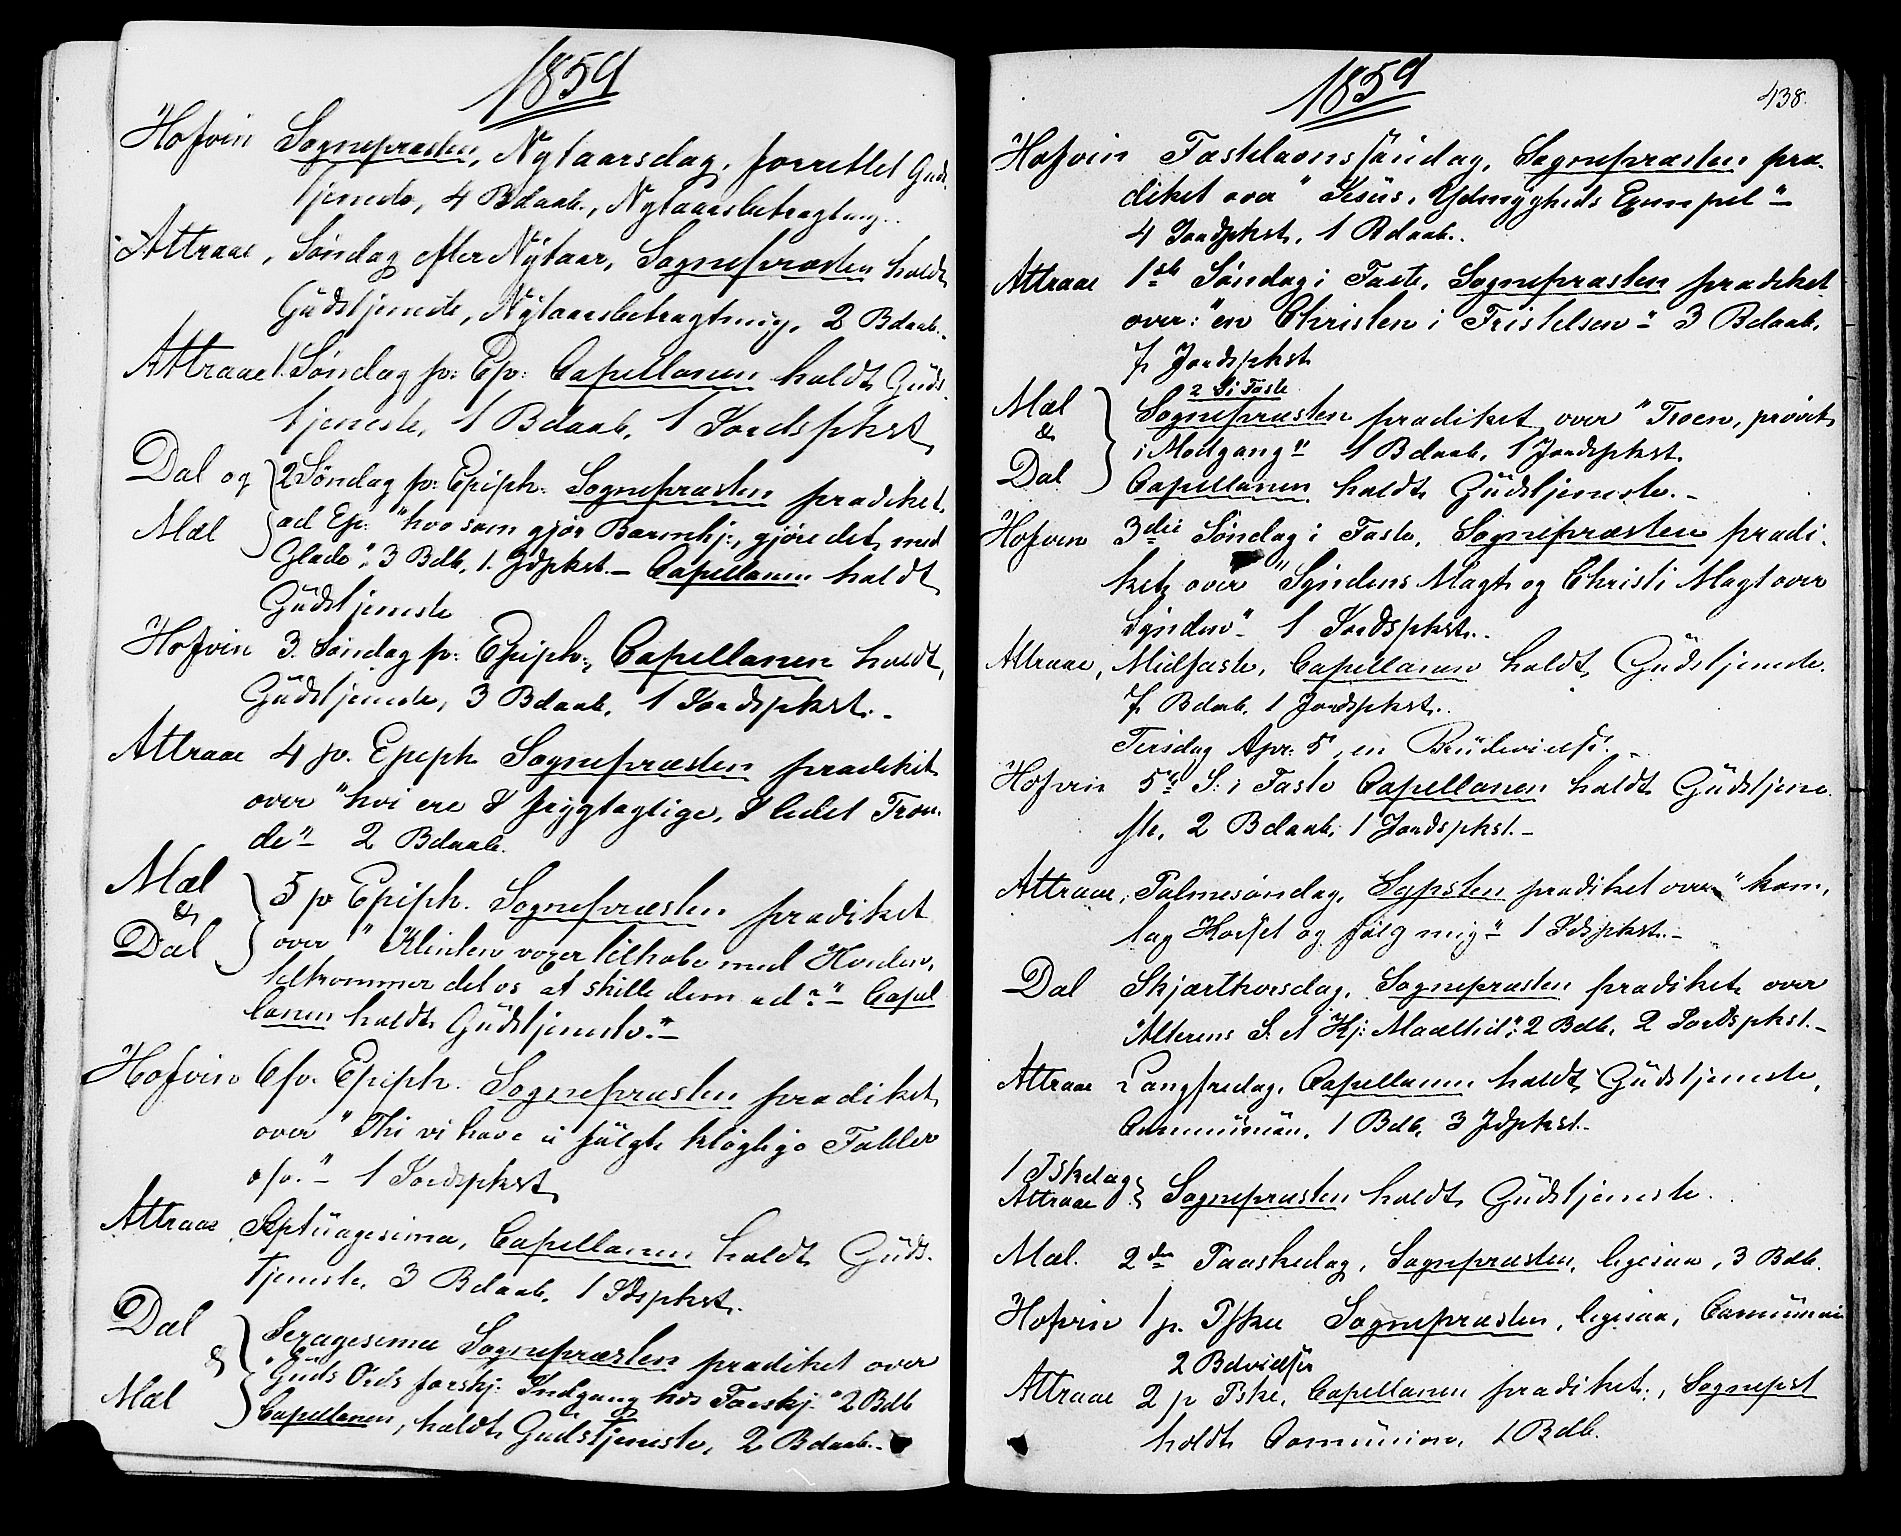 1859
Hofvin Sognepræsten, Nytaarsdag, forrettet Guds-
tjeneste, 4 Bdaab., Nytaarsbetragtning.
Attraae, Søndag efter Nytaar, Sognepræsten holdt
Gudstjeneste, Nytaarsbetragtning, 2 Bdaab.
Attraae 1. Søndag p: Ep: Capellanen holdt Guds-
tjeneste, 1 Bdaab, 1 Jordspkst
Dal og 2 Søndag p: Epiph: Sognepræsten prædiket
Mæl ad Ep: "hvo som gjør Barmhj:, gjøre det med
Glæde", 3 Bdb, 1. Jdpkst. – Capellanen holdt
Gudstjeneste
Hofvin 3. Søndag p: Epiph:, Capellanen holdt
Gudstjeneste, 3 Bdaab, 1 Jordspkst. –
Attraae 4 p. Epiph Sognepræsten prædiket
over "hvi ere I frygtagtige, I lidet Troen-
de" 2 Bdaab.
Mæl & Dal 5 p Epiph. Sognepræsten prædiket
over "Klinten voxer tilhobe med Hveden,
tilkommer det os at skille dem ad?" – Capel
lanen holdt Gudstjeneste. –
Hofvin 6 p. Epiph. Sognepræsten prædiket
over "Thi vi have ei fulgt kløgtige Fabler
osv." – 1 Jordspkst
Attraae Septuagesima, Capellanen holdt Guds-
tjeneste, 3 Bdaab, 1 Jdspkst.
Dal & Mæl Sexagesima Sognepræsten prædiket over
"Guds Ords forskj: Indgang hos Forskj:" 2 Bdb
Capellanen, holdt Gudstjeneste, 2 Bdaab. –
1859
438.
Hofvin Fastelavnssøndag, Sognepræsten præ-
diket over "Jesus, Ydmygheds Exempel"
4 Jordpkst, 1 Bdaab.
Attraae 1ste Søndag i Faste, Sognepræsten prædiket
over: "en Christen i Fristelsen" 3 Bdaab,
7 Jordspkst
2 S i Faste
Mæl & Dal Sognepræsten prædiket over "Troen, prøvet
i Modgang" 1 Bdaab, 1 Jordspkst.
Capellanen holdt Gudstjeneste. –
Hofvin 3die Søndag i Faste, Sognepræsten prædi-
ket over "Syndens Magt og Christi Magt over
Synden" 1 Jordspkst.
Attraae, Midfaste, Capellanen holdt Gudstjeneste.
7 Bdaab, 1 Jordspkst.
Tirsdag Apr: 5, en Brudevielse. –
Hofvin 5te S: i Faste Capellanen holdt Gudstjene-
ste, 2 Bdaab, 1 Jordspkst. –
Attraae, Palmesøndag, Sgpsten prædiket over "kom,
tag Korset og følg mig" 1 Jdspkst. –
Dal Skjærthorsdag, Sognepræsten prædiket over
"Alterens S. et Kj: Maaltid", 2 Bdb, 2 Jordspkst. –
Attraae Langfredag, Capellanen holdt Gudstjeneste,
Communion, 1 Bdb, 3 Jdpkst. –
1 Pskedag
Attraae Sognepræsten holdt Gudstjeneste.
Mæl. 2den Paaskedag, Sognepræsten, ligesaa, 3 Bdb.
Hofvin 1 p. Pske Sognepræsten, ligesaa, Comunion
2 Bdvielser
Attraae 2 p Pske, Capellanen prædiket, Sognepst
holdt Comunion, 1 Bdb.